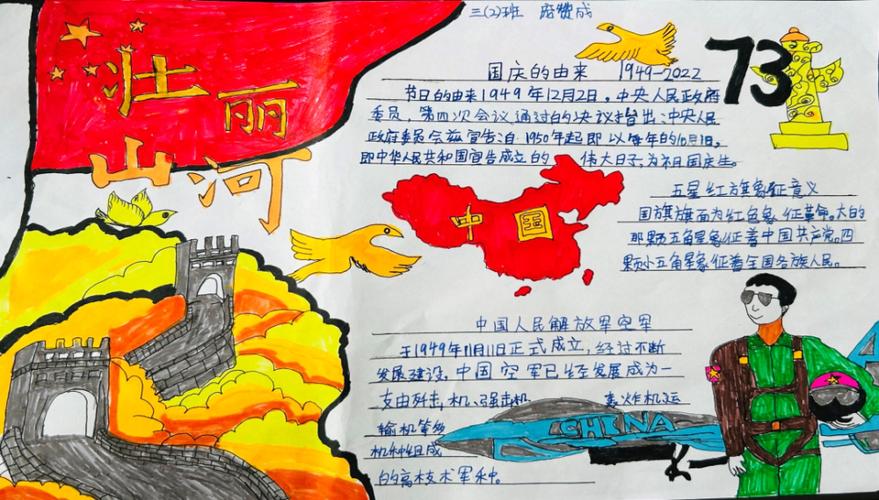 三(2)班
73
壮丽
山河
国庆的由来 1949-2022
节日的由来1949年12月2日，中央人民政府
委员，第四次会议通过的决议指出:中央人民
政府委员会兹宣告:自1950年起即以每年的10月1日，
即中华人民共和国宣告成立的 伟大日子，为祖国庆生。
五星红旗象征意义
国旗旗面为红色象征革命。大的
那颗五角星象征着中国共产党。四
颗小五角星象征着全国各族人民。
中国
中国人民解放军空军
于1949年11月11日正式成立，经过不断
发展建设，中国空军已经发展成为一
支由歼击机、强击机 轰炸机运
输机等多
机种组成
CHINA
的高技术军种。